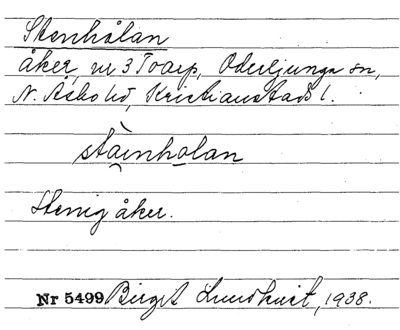 Stenhålan
åker, nr 3 Toarp, Oderljunga sn,
N. Åsbo hd, Kristianstads l.
stàinholan
Stenig åker.
Nr 5499 Birgit Lundkvist, 1938.